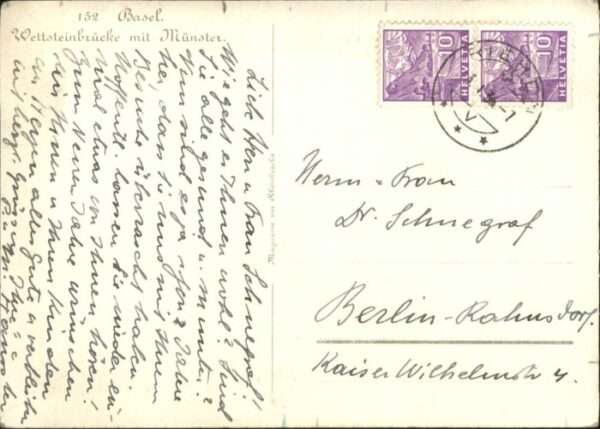 152 Basel.
Wettsteinbrücke mit Münster.
Liebe Herr u Frau Schnegraf!
Wie geht es Ihnen wohl? Sind
Sie alle gesund u. munter?
Nun sind es ja schon 2 Jahre
her, dass Sie uns mit Ihrem
Besuche überrascht haben.
Hoffentl. lassen Sie wieder ein-
mal etwas von Ihnen hören!
Zum Neuen Jahre wünschen
wir Ihnen u Ihren Kindern
von Herzen alles Gute u verbleiben
mit herzl. Grüssen Ihre
10
HELVETIA
10
HELVETIA
Herrn u Frau
Dr. Schnegraf
Berlin-Kahnsdorf.
Kaiser Wilhelmstr 4.